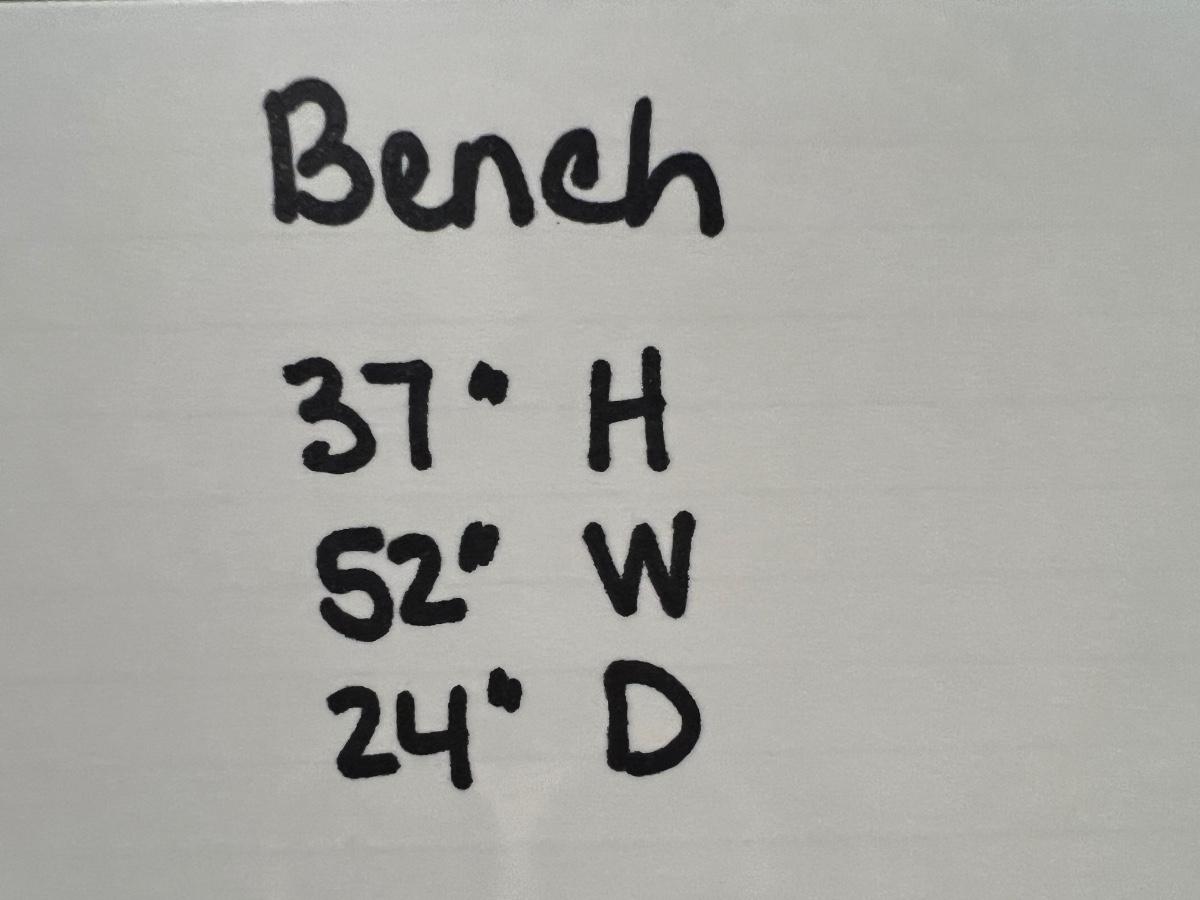 Bench
37" H
52" W
24" D